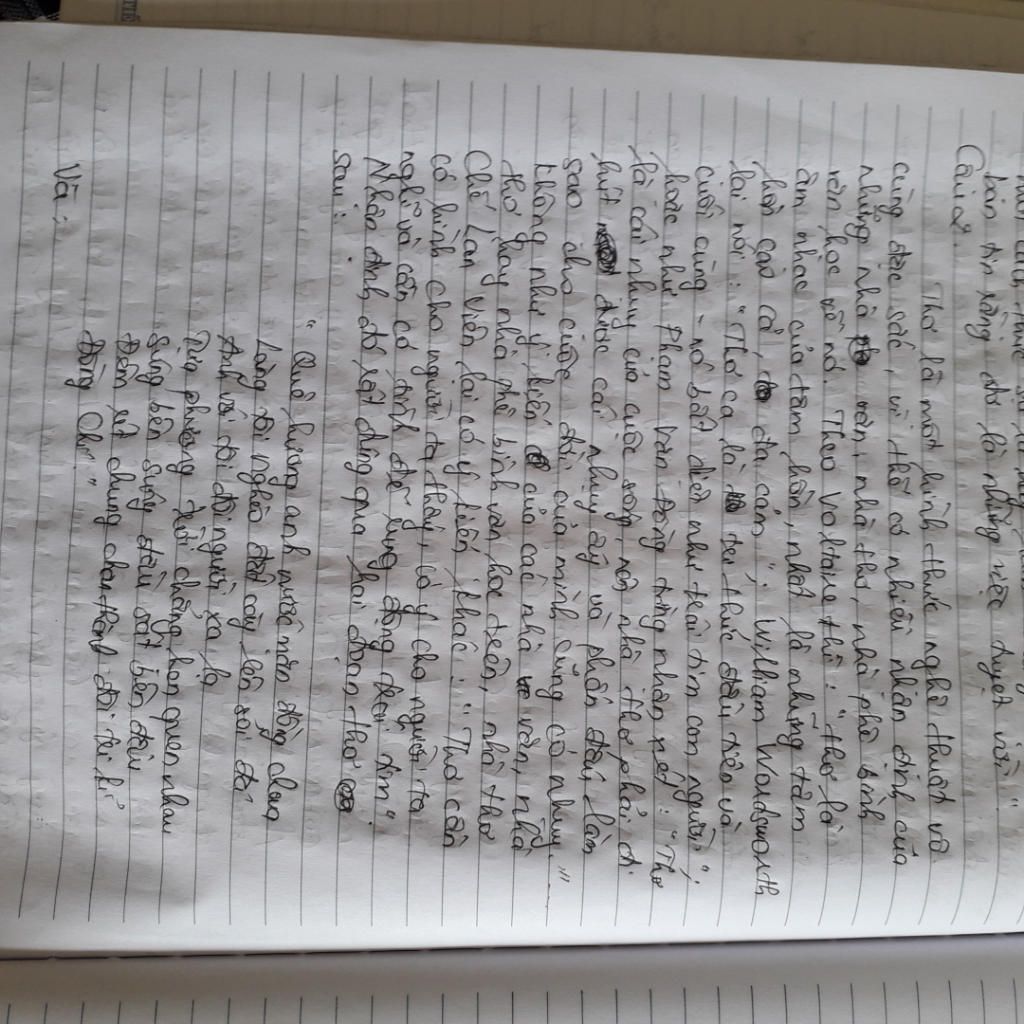 bản ăn rằng đó là những việc tuyệt vời."
Câu 2.
Thơ là một hình thức nghệ thuật vô
cùng đặc sắc, vì thế có nhiều nhận định của
những nhà văn, nhà thơ, nhà phê bình
văn học về nó. Theo Voltare thì: "thơ là
âm nhạc của tâm hồn, nhất là những tâm
hồn cao cả, đa cảm"; William Wordsworth
lại nói: "Thơ ca là tri thức đầu tiên và
cuối cùng - nó bất diệt như trái tim con người";
hoặc như Phạm Văn Đồng từng nhận xét: "Thơ
là cái nhụy của cuộc sống, nên nhà thơ phải đi
hút được cái nhụy ấy và phấn đấu làm
sao cho cuộc đời của mình cũng có nhụy."...
Không như ý kiến của các nhà văn, nhà
thơ hay nhà phê bình văn học trên, nhà thơ
Chế Lan Viên lại có ý kiến khác: "Thơ cần
có hình cho người ta thấy, có ý cho người ta
nghĩ và cần có tình để rung động trái tim"
Nhận định đó rất đúng qua hai đoạn thơ
sau:
"Quê hương anh nước mặn đồng chua
Làng tôi nghèo đất cày lên sỏi đá
Anh với tôi đôi người xa lạ
Tự phương trời chẳng hẹn quen nhau
Súng bên súng đầu sát bên đầu
Đêm rét chung chăn thành đôi tri kỉ
Đồng Chí"
Và: